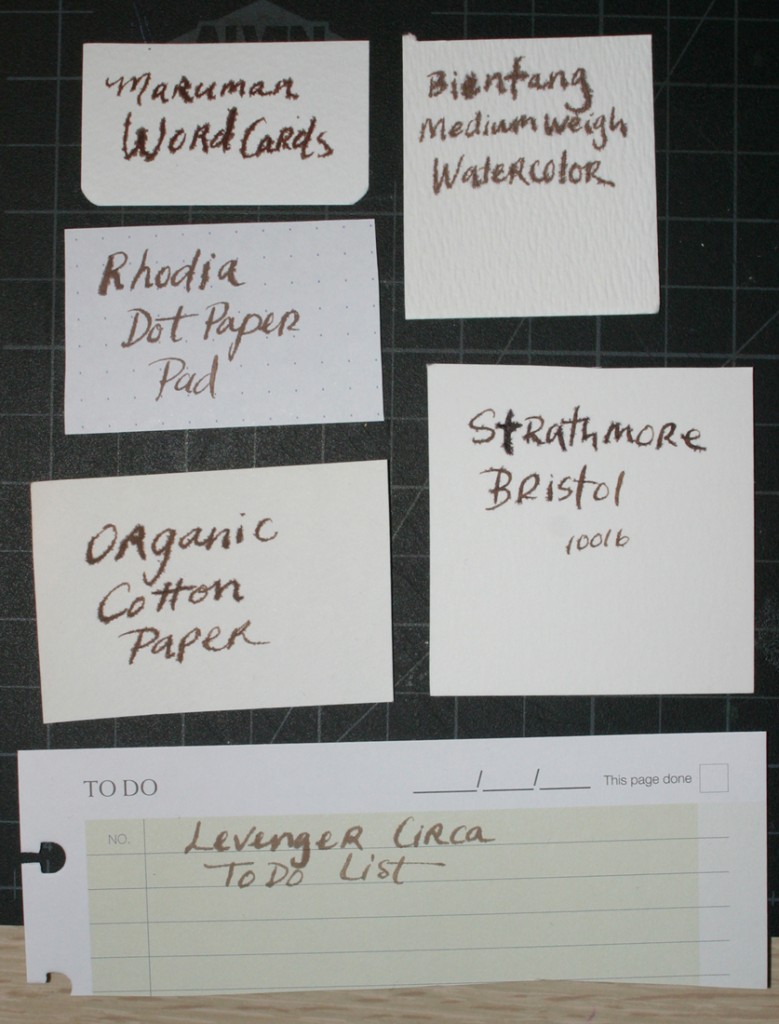 ALVIN
Maruman
Word Cards
Bienfang
Medium Weigh
Watercolor
Rhodia
Dot Paper
Pad
Strathmore
Bristol
100lb
Organic
Cotton
Paper
TO DO
__/__/__ This page done
NO.
Levenger Circa
To Do List